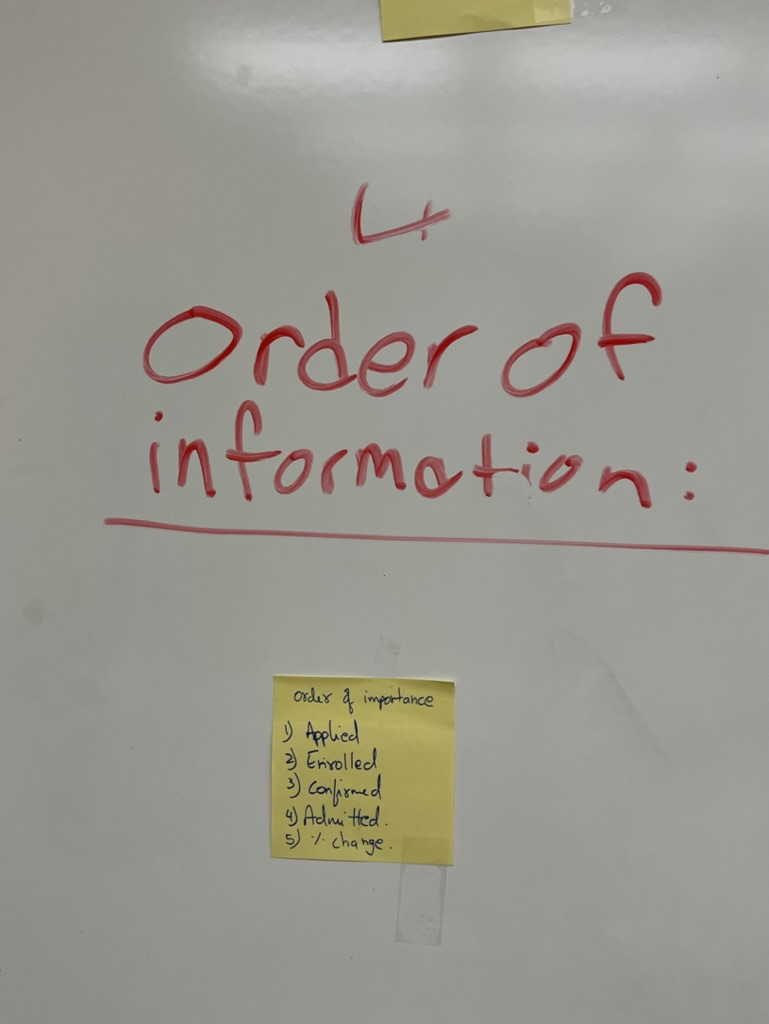 Order of
information:
order of importance
1) Applied
2) Enrolled
3) Confirmed
4) Admitted.
5) % change.